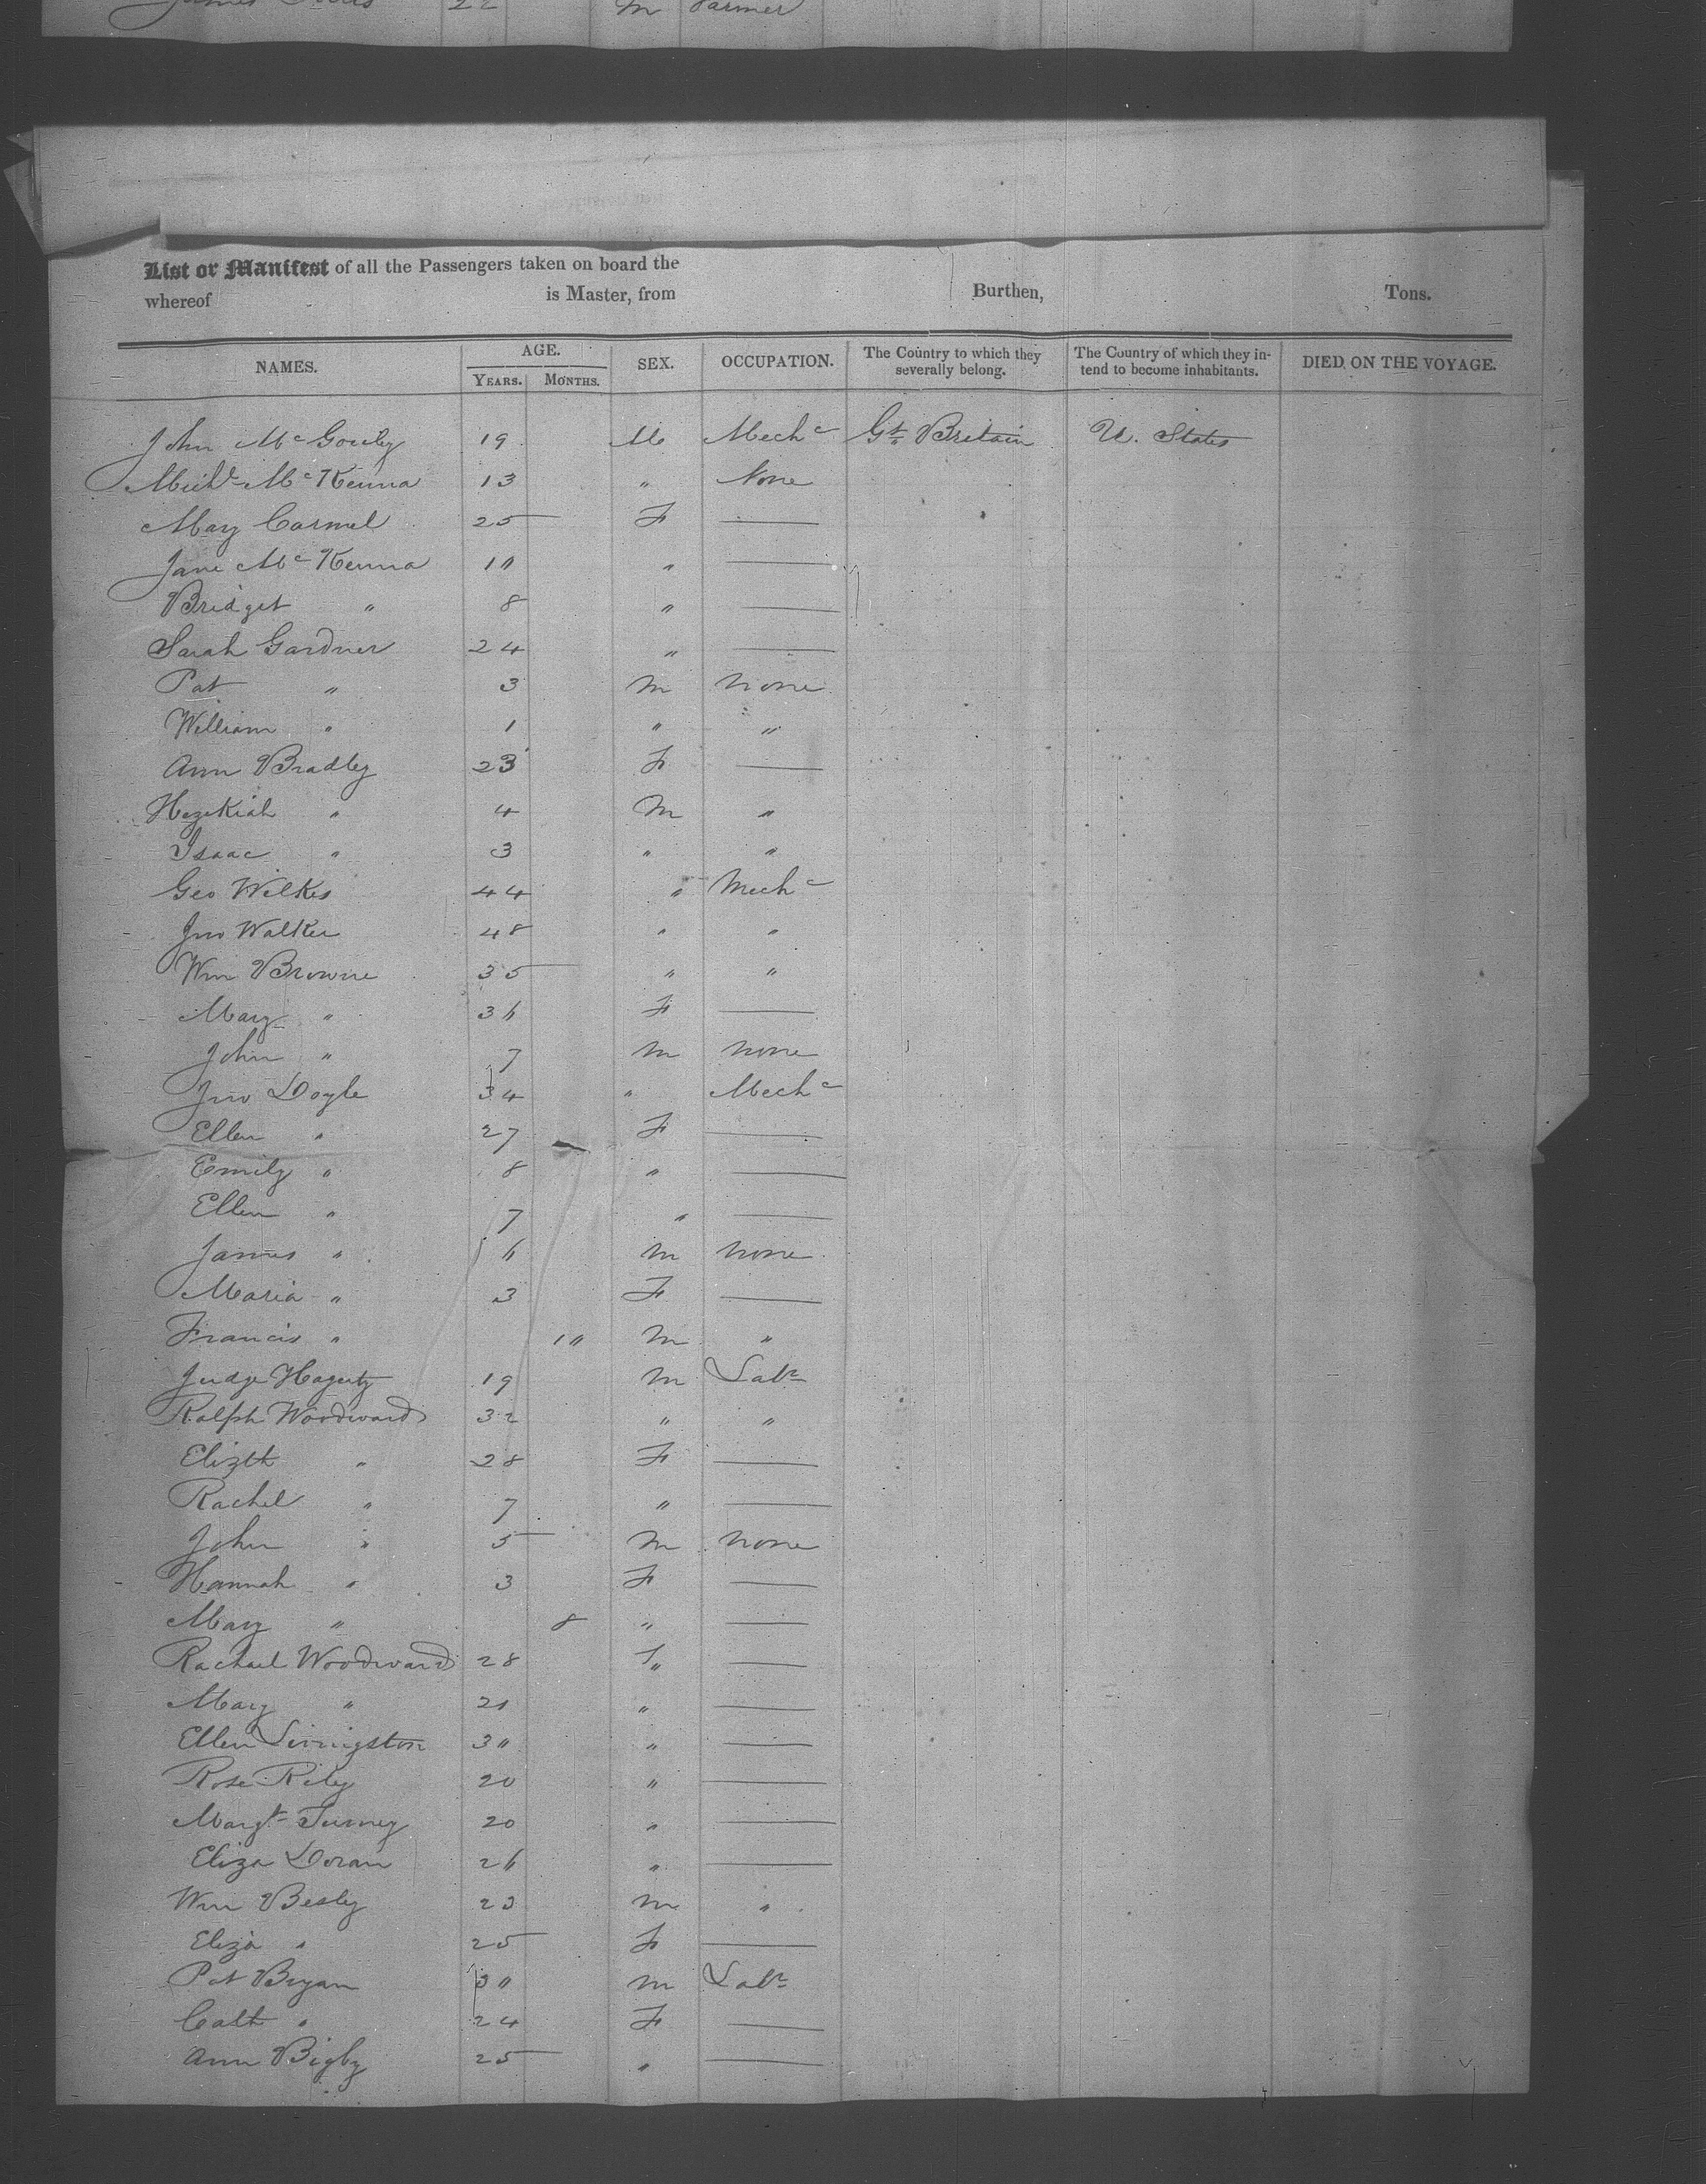 22 m Farmer
List or Manifest of all the Passengers taken on board the
whereof is Master, from Burthen, Tons.
NAMES. AGE. YEARS. MONTHS. SEX. OCCUPATION. The Country to which they severally belong. The Country of which they intend to become inhabitants. DIED ON THE VOYAGE.
John Mc 19 M Mechc Gt Britain U. States
Michl Mc Kenna 13 " None
Mary Carmel 25 F —
Jane Mc Kenna 10 " —
Bridget " 8 " —
Sarah Gardner 24 " —
Pat " 3 m none
William " 1 " "
Ann Bradley 23 F —
Hezekiah " 4 M "
Isaac " 3 " "
Geo Wilkes 44 " Mechc
Jno Walker 48 " "
Wm Browne 35 " "
Mary " 36 F —
John " 7 m none
Jno Doyle 34 " Mechc
Ellen " 27 F —
Emily " 8 " —
Ellen " 7 " —
James " 6 m none
Maria " 3 F —
Francis " 10 m "
Judge Hagerty 19 m Labr
Ralph Woodward 32 " "
Elizth " 28 F —
Rachel " 7 " —
John " 5 m none
Hannah " 3 F —
Mary " 8 " —
Rachael Woodward 28 F" —
Mary " 21 " —
Ellen Livingston 30 " —
Rose Riley 20 " —
Margt 20 " —
Eliza Doran 26 " —
Wm Besley 23 m "
Eliza " 25 F —
Pat Bryan 30 m Labr
Cath " 24 F —
Ann Bigby 25 " —